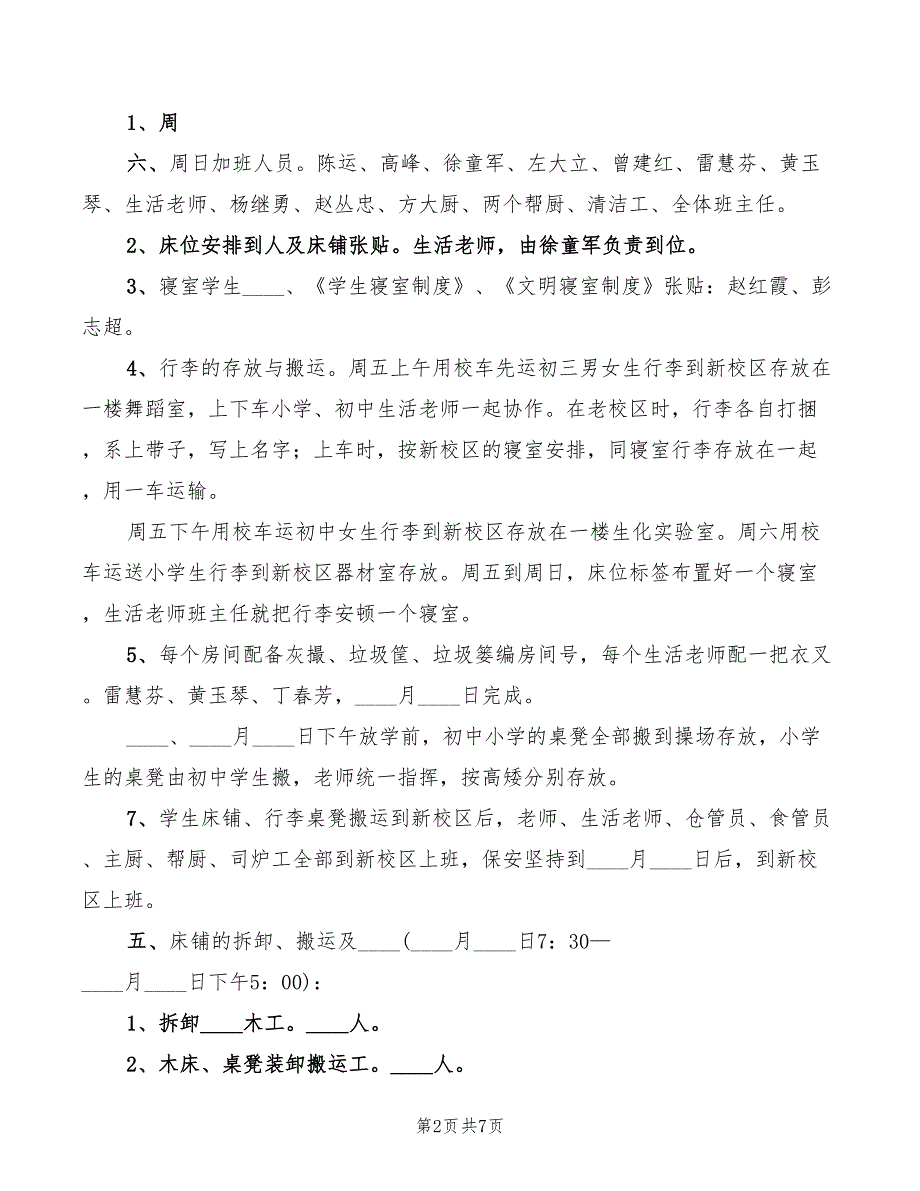 1、周
六、周日加班人员。陈运、高峰、徐童军、左大立、曾建红、雷慧芬、黄玉
琴、生活老师、杨继勇、赵丛忠、方大厨、两个帮厨、清洁工、全体班主任。
2、床位安排到人及床铺张贴。生活老师，由徐童军负责到位。
3、寝室学生____、《学生寝室制度》、《文明寝室制度》张贴：赵红霞、彭
志超。
4、行李的存放与搬运。周五上午用校车先运初三男女生行李到新校区存放在
一楼舞蹈室，上下车小学、初中生活老师一起协作。在老校区时，行李各自打捆
，系上带子，写上名字；上车时，按新校区的寝室安排，同寝室行李存放在一起
，用一车运输。
周五下午用校车运初中女生行李到新校区存放在一楼生化实验室。周六用校
车运送小学生行李到新校区器材室存放。周五到周日，床位标签布置好一个寝室
，生活老师班主任就把行李安顿一个寝室。
5、每个房间配备灰撮、垃圾筐、垃圾篓编房间号，每个生活老师配一把衣叉
。雷慧芬、黄玉琴、丁春芳，____月____日完成。
____、____月____日下午放学前，初中小学的桌凳全部搬到操场存放，小学
生的桌凳由初中学生搬，老师统一指挥，按高矮分别存放。
7、学生床铺、行李桌凳搬运到新校区后，老师、生活老师、仓管员、食管员
、主厨、帮厨、司炉工全部到新校区上班，保安坚持到____月____日后，到新校
区上班。
五、床铺的拆卸、搬运及____(____月____日7：30—
____月____日下午5：00)：
1、拆卸____木工。____人。
2、木床、桌凳装卸搬运工。____人。
第2页 共7页